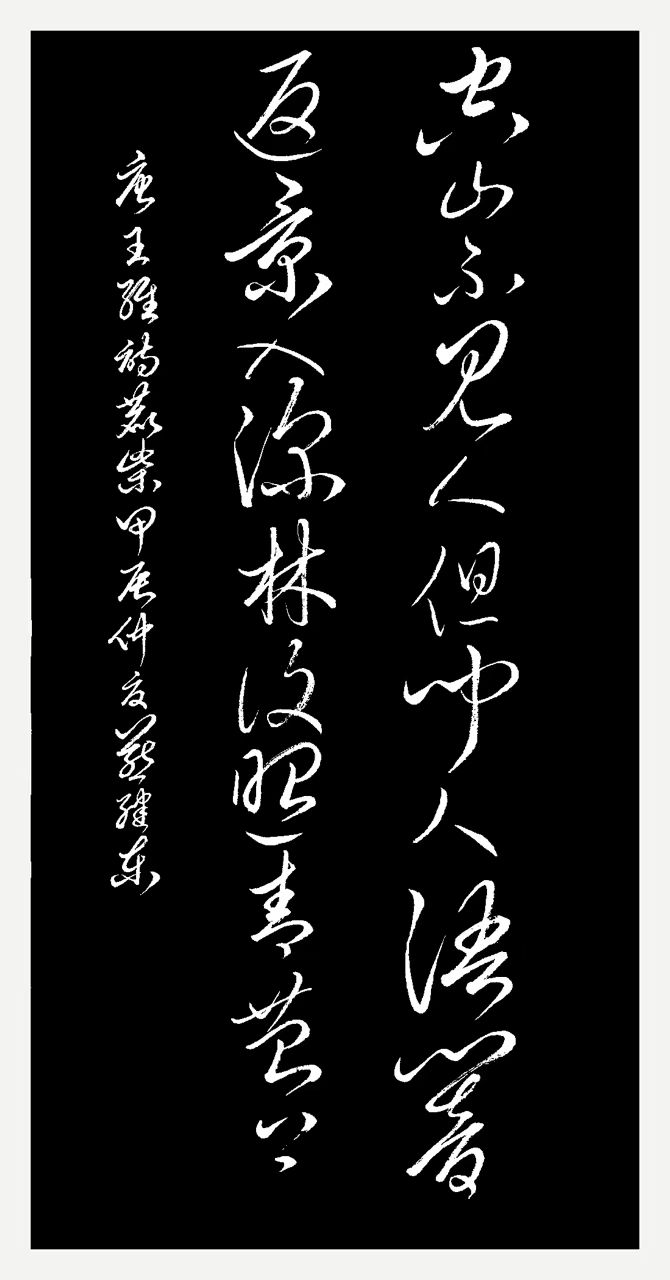 空山不見人但聞人語響
返景入深林復照青苔上
唐王維詩鹿柴甲辰仲夏東